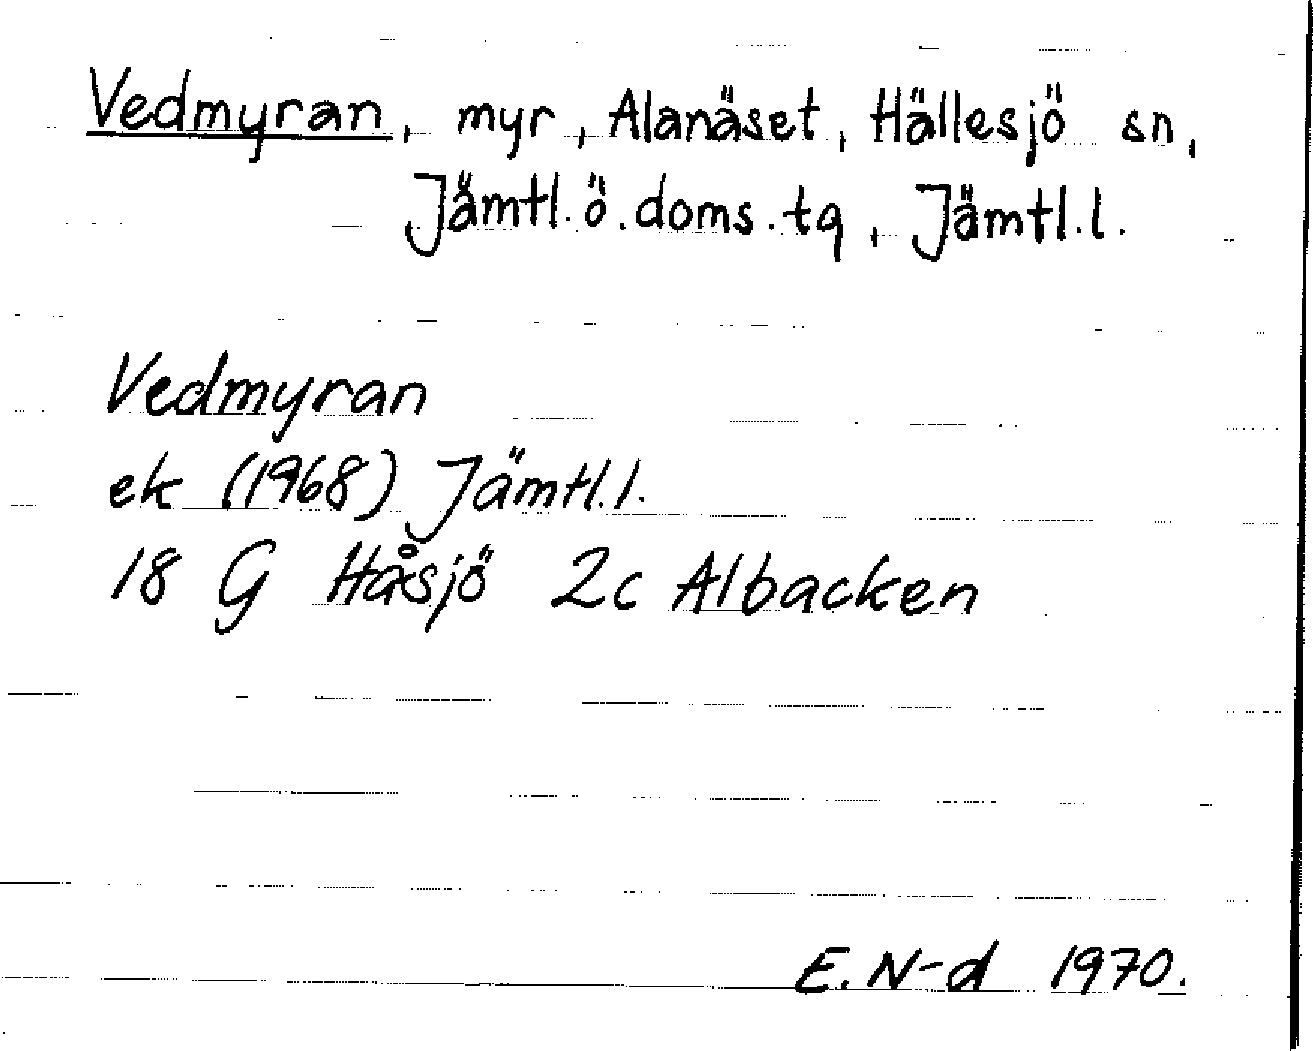 Vedmyran, myr, Alanäset, Hällesjö sn,
Jämtl. ö. doms. tg, Jämtl. l.
Vedmyran
ek (1968) Jämtl. l.
18 G Håsjö 2c Albacken
E. N-d 1970.